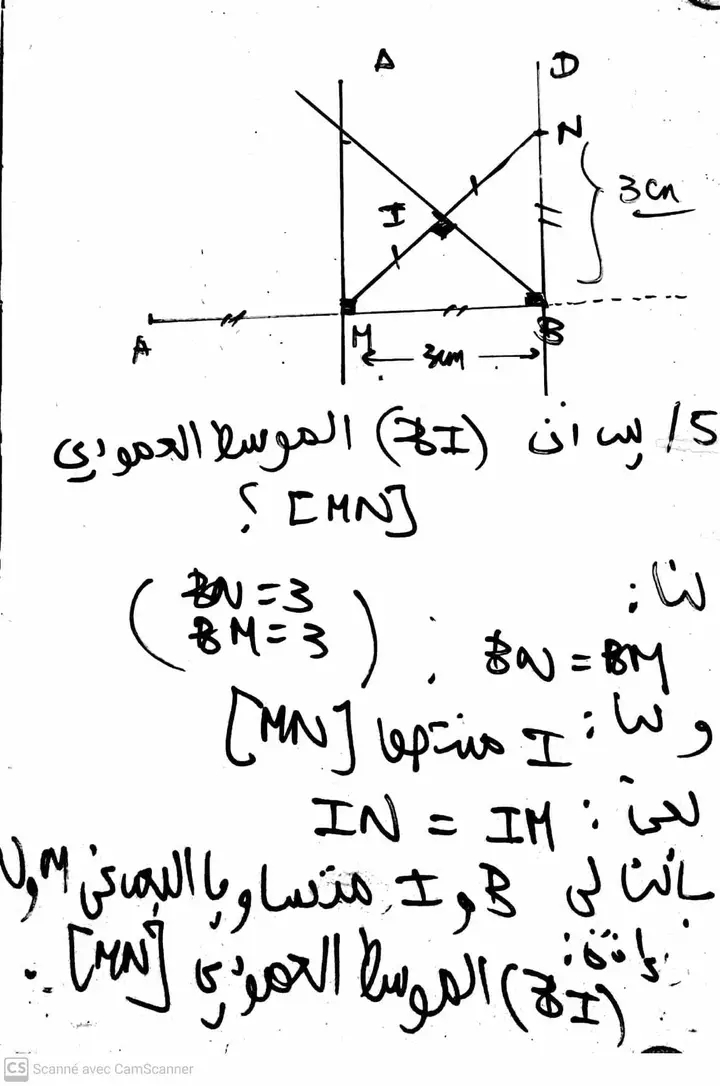 Δ
D
N
3cm
I
A
M
B
3cm
5/ بين أن (BI) الموسط العمودي
[MN] ؟
لنا:
BN = BM : (BN = 3
BM = 3)
و لنا: I منتصف [MN]
يعني: IN = IM
بالتالي B و I متساويا البعد عن M و N
إذن:
(BI) الموسط العمودي [MN].
CS Scanné avec CamScanner